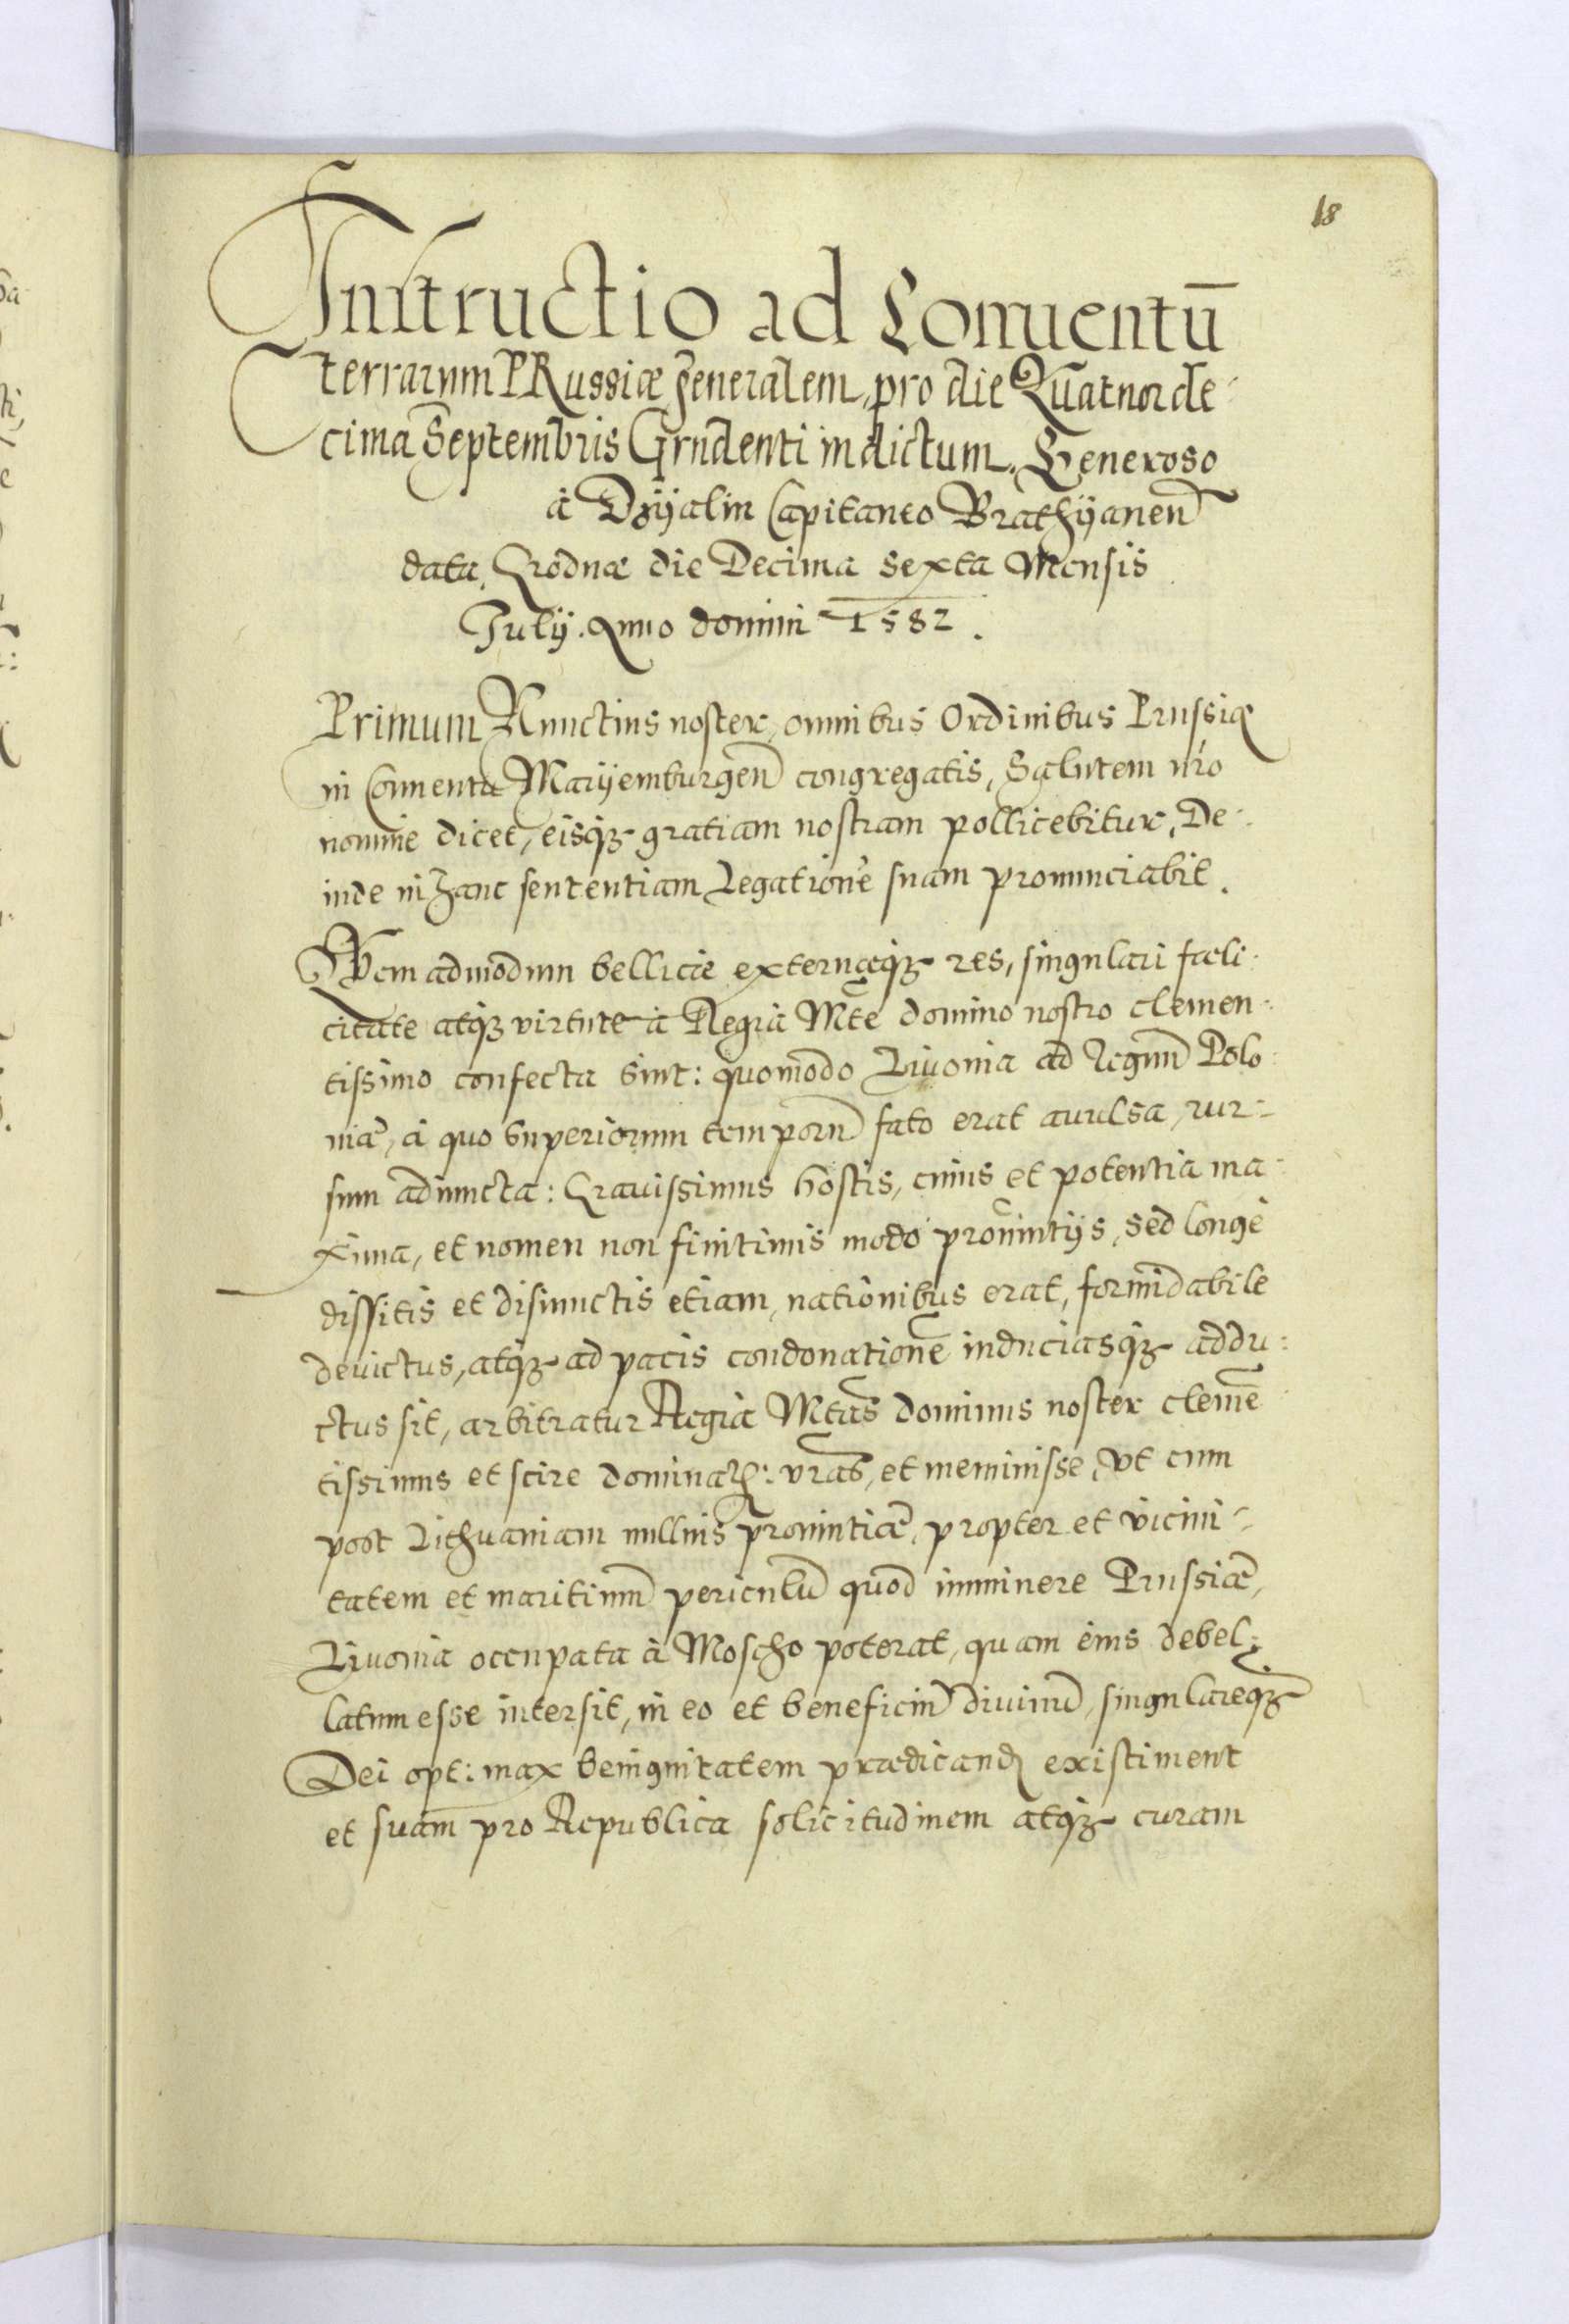 18
Instructio ad Conuentū
terrarum PRussiæ generalem, pro die Quatuorde-
cima Septembris Grudenti indictum. Generoso
à Dzÿalin Capitaneo Brathÿanen̄
data Grodnæ die Decima sexta Mensis
Julÿ. Anno domini 1582.
Primum Nunctius noster, omnibus Ordinibus Prussię
in Conuentu Marÿemburgen̄ congregatis, Salutem nr̄o
nomine dicet, eisqꝫ gratiam nostram pollicebitur, De-
inde in hanc sententiam Legationē suam pronunciabit.
Quem admodum bellicæ externæqꝫ res, singulari fœli-
citate atqꝫ virtute à Regia Mt̄e domino nostro clemen-
tissimo confecta sint: quomodo Liuonia ad Regnum̄ Polo-
niæ, à quo superiorum temporū fato erat auulsa, rur-
sum adiuncta: Grauissimus hostis, cuius et potentia ma-
xima, et nomen non finitimis modo prouintÿs, sed longè
dissitis et disiunctis etiam, nationibus erat, formidabile
deuictus, atqꝫ ad pacis condonationē induciasqꝫ addu-
ctus sit, arbitratur Regia Mt̄as dominus noster clemē
tissimus et scire dominaꝝ: vr̄as, et meminisse, Vt cum
post Lithuaniam nullius prouintiæ, propter et vicini-
tatem et maritimū periculū quod imminere Prussiæ,
Liuonia occupata à Moscho poterat, quam eius debel-
latum esse intersit, in eo et beneficiū diuinū, singulareqꝫ
Dei opt: max benignitatem prædicandꝫ existiment
et suam pro Republica solicitudinem atqꝫ curam